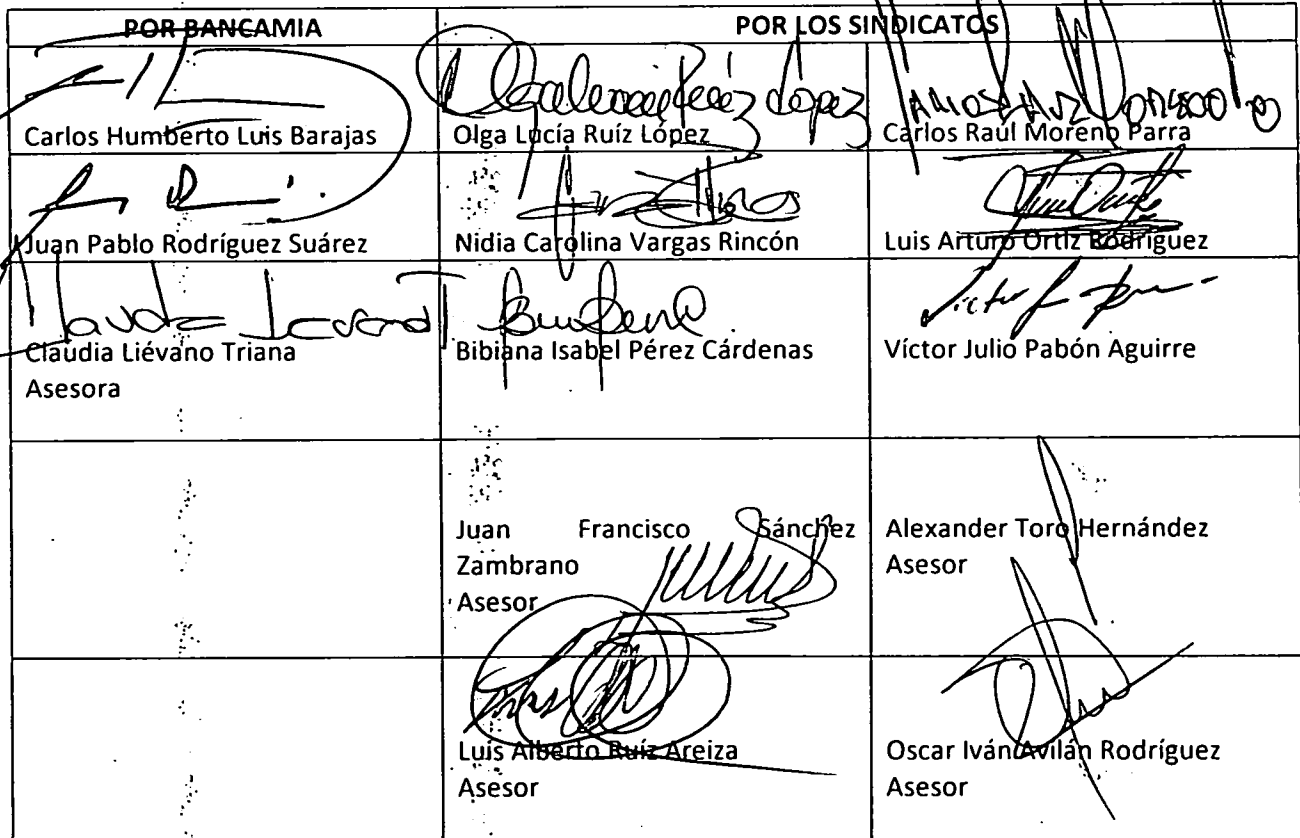 POR BANCAMIA
POR LOS SINDICATOS
Carlos Humberto Luis Barajas
Olga Lucía Ruíz López
Carlos Raúl Moreno Parra
Juan Pablo Rodríguez Suárez
Nidia Carolina Vargas Rincón
Luis Arturo Ortiz Rodríguez
Claudia Liévano Triana
Asesora
Bibiana Isabel Pérez Cárdenas
Víctor Julio Pabón Aguirre
Juan Francisco Sánchez
Zambrano
Asesor
Alexander Toro Hernández
Asesor
Luis Alberto Ruíz Areiza
Asesor
Oscar Iván Avilán Rodríguez
Asesor